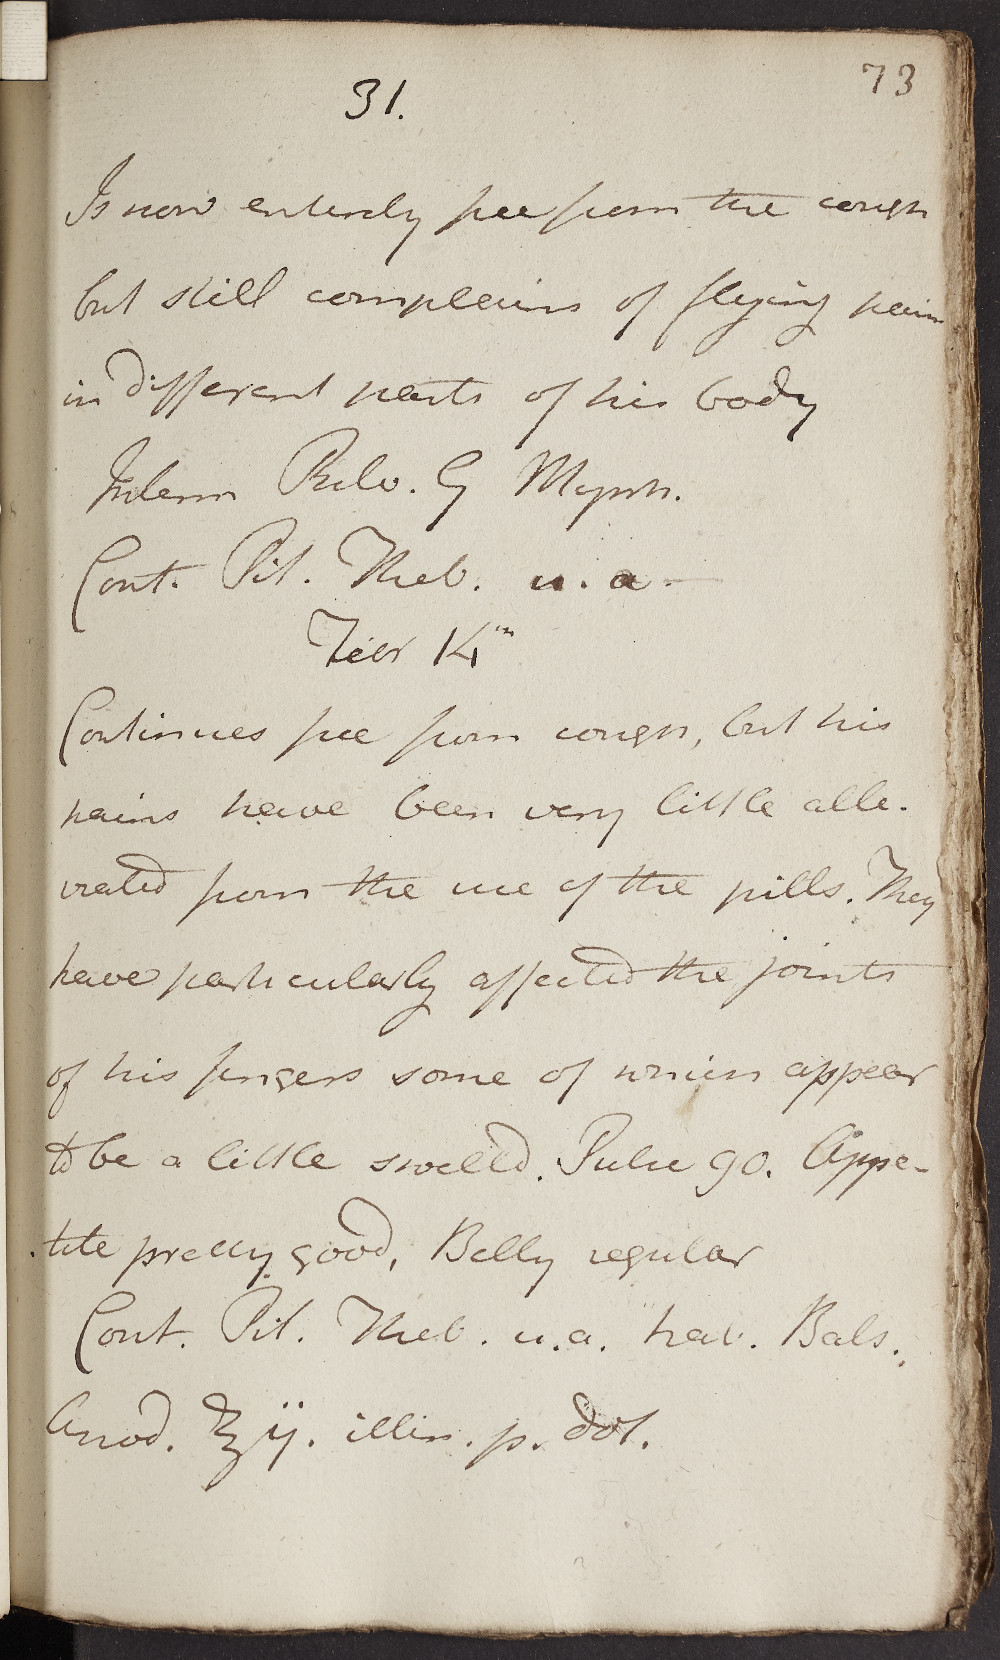 73
31.
Is now entirely free from the cough
but still complains of flying pains
in different parts of his body
Interm Pulv. G Myrrh.
Cont. Pil. Theb. u. a.
Febr 14th
Continues free from cough, but his
pains have been very little alle-
viated from the use of the pills. They
have particularly affected the joints
of his fingers some of which appear
to be a little swelld. Pulse 90. Appe-
tite pretty good, Belly regular
Cont. Pil. Theb. u.a. hab. Bals.
Anod. ℥ij. illin. p. dol.